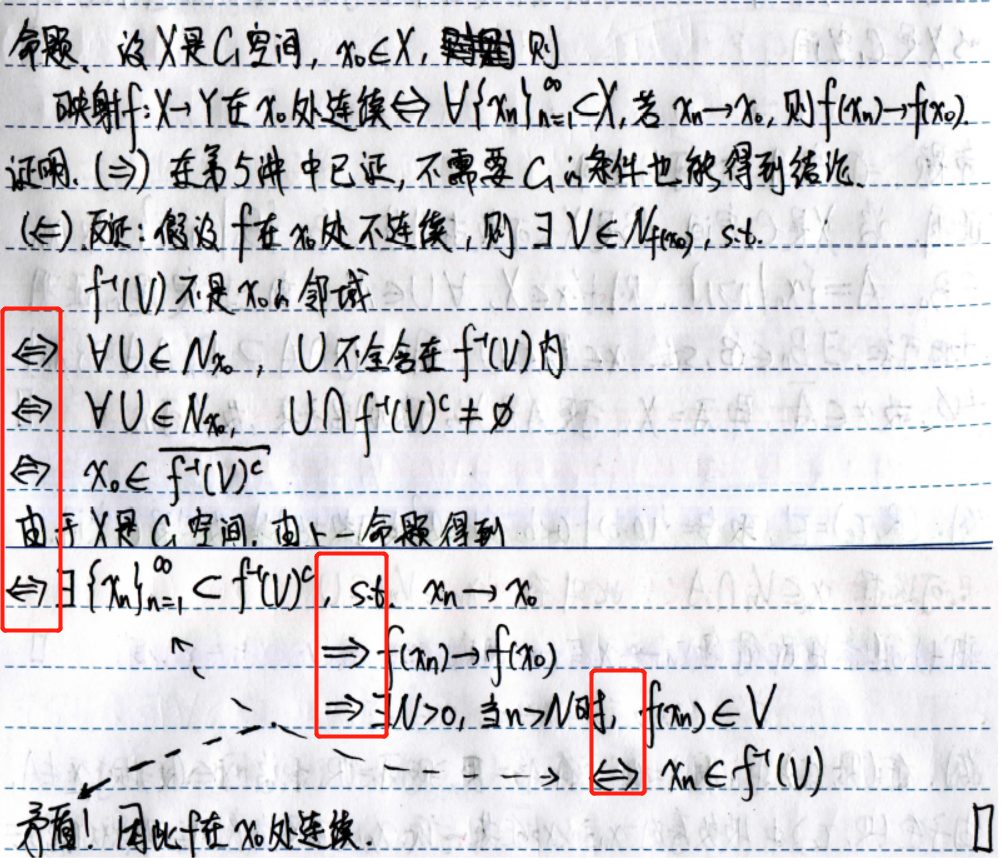 命题. 设X是C₁空间, x₀∈X, 则
映射f:X→Y在x₀处连续⇔∀{xₙ}ₙ₌₁^∞⊂X, 若xₙ→x₀, 则f(xₙ)→f(x₀).
证明. (⇒) 在第5讲中已证, 不需要C₁的条件也能得到结论.
(⇐) 反证: 假设f在x₀处不连续, 则∃V∈N_{f(x₀)}, s.t.
f⁻¹(V)不是x₀的邻域
⇔ ∀U∈N_{x₀}, U不全含在f⁻¹(V)内
⇔ ∀U∈N_{x₀}, U∩f⁻¹(V)ᶜ≠∅
⇔ x₀∈\overline{f⁻¹(V)ᶜ}
由于X是C₁空间. 由上一命题得到
⇔ ∃{xₙ}ₙ₌₁^∞⊂f⁻¹(V)ᶜ, s.t. xₙ→x₀
⇒ f(xₙ)→f(x₀)
⇒ ∃N>0, 当n>N时, f(xₙ)∈V
⇔ xₙ∈f⁻¹(V)
矛盾! 因此f在x₀处连续. □